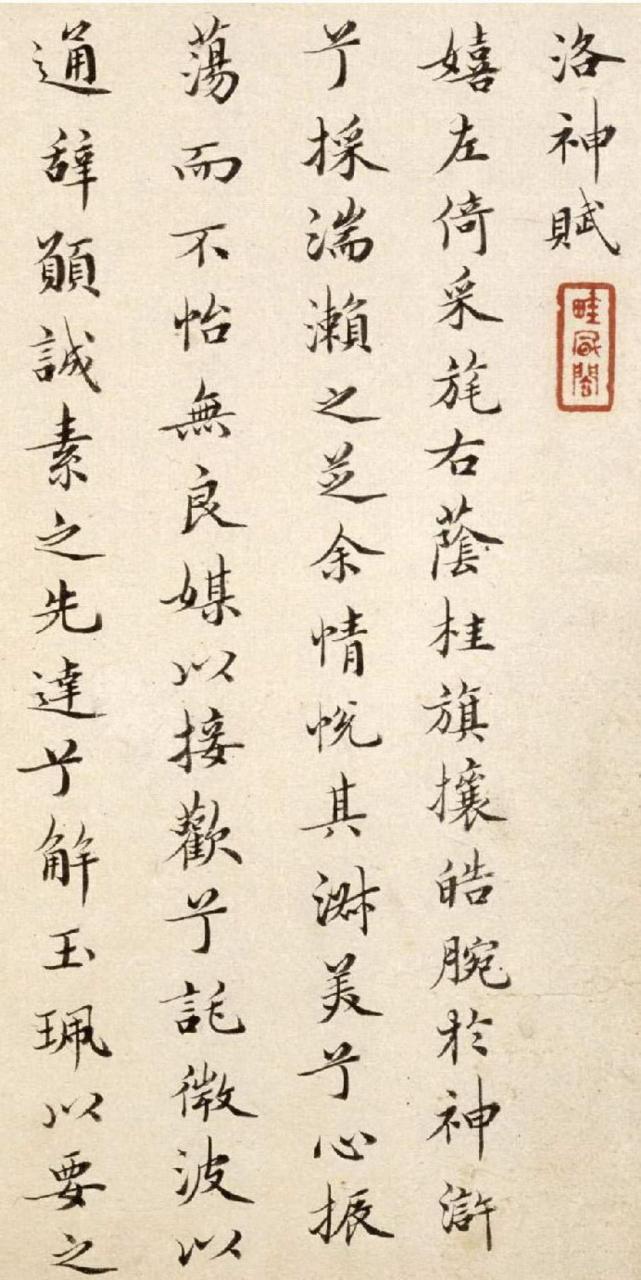 洛神賦
嬉左倚采旄右蔭桂旗攘皓腕於神滸
兮採湍瀨之芝余情悅其淑美兮心振
蕩而不怡無良媒以接歡兮託微波以
通辭願誠素之先達兮解玉珮以要之